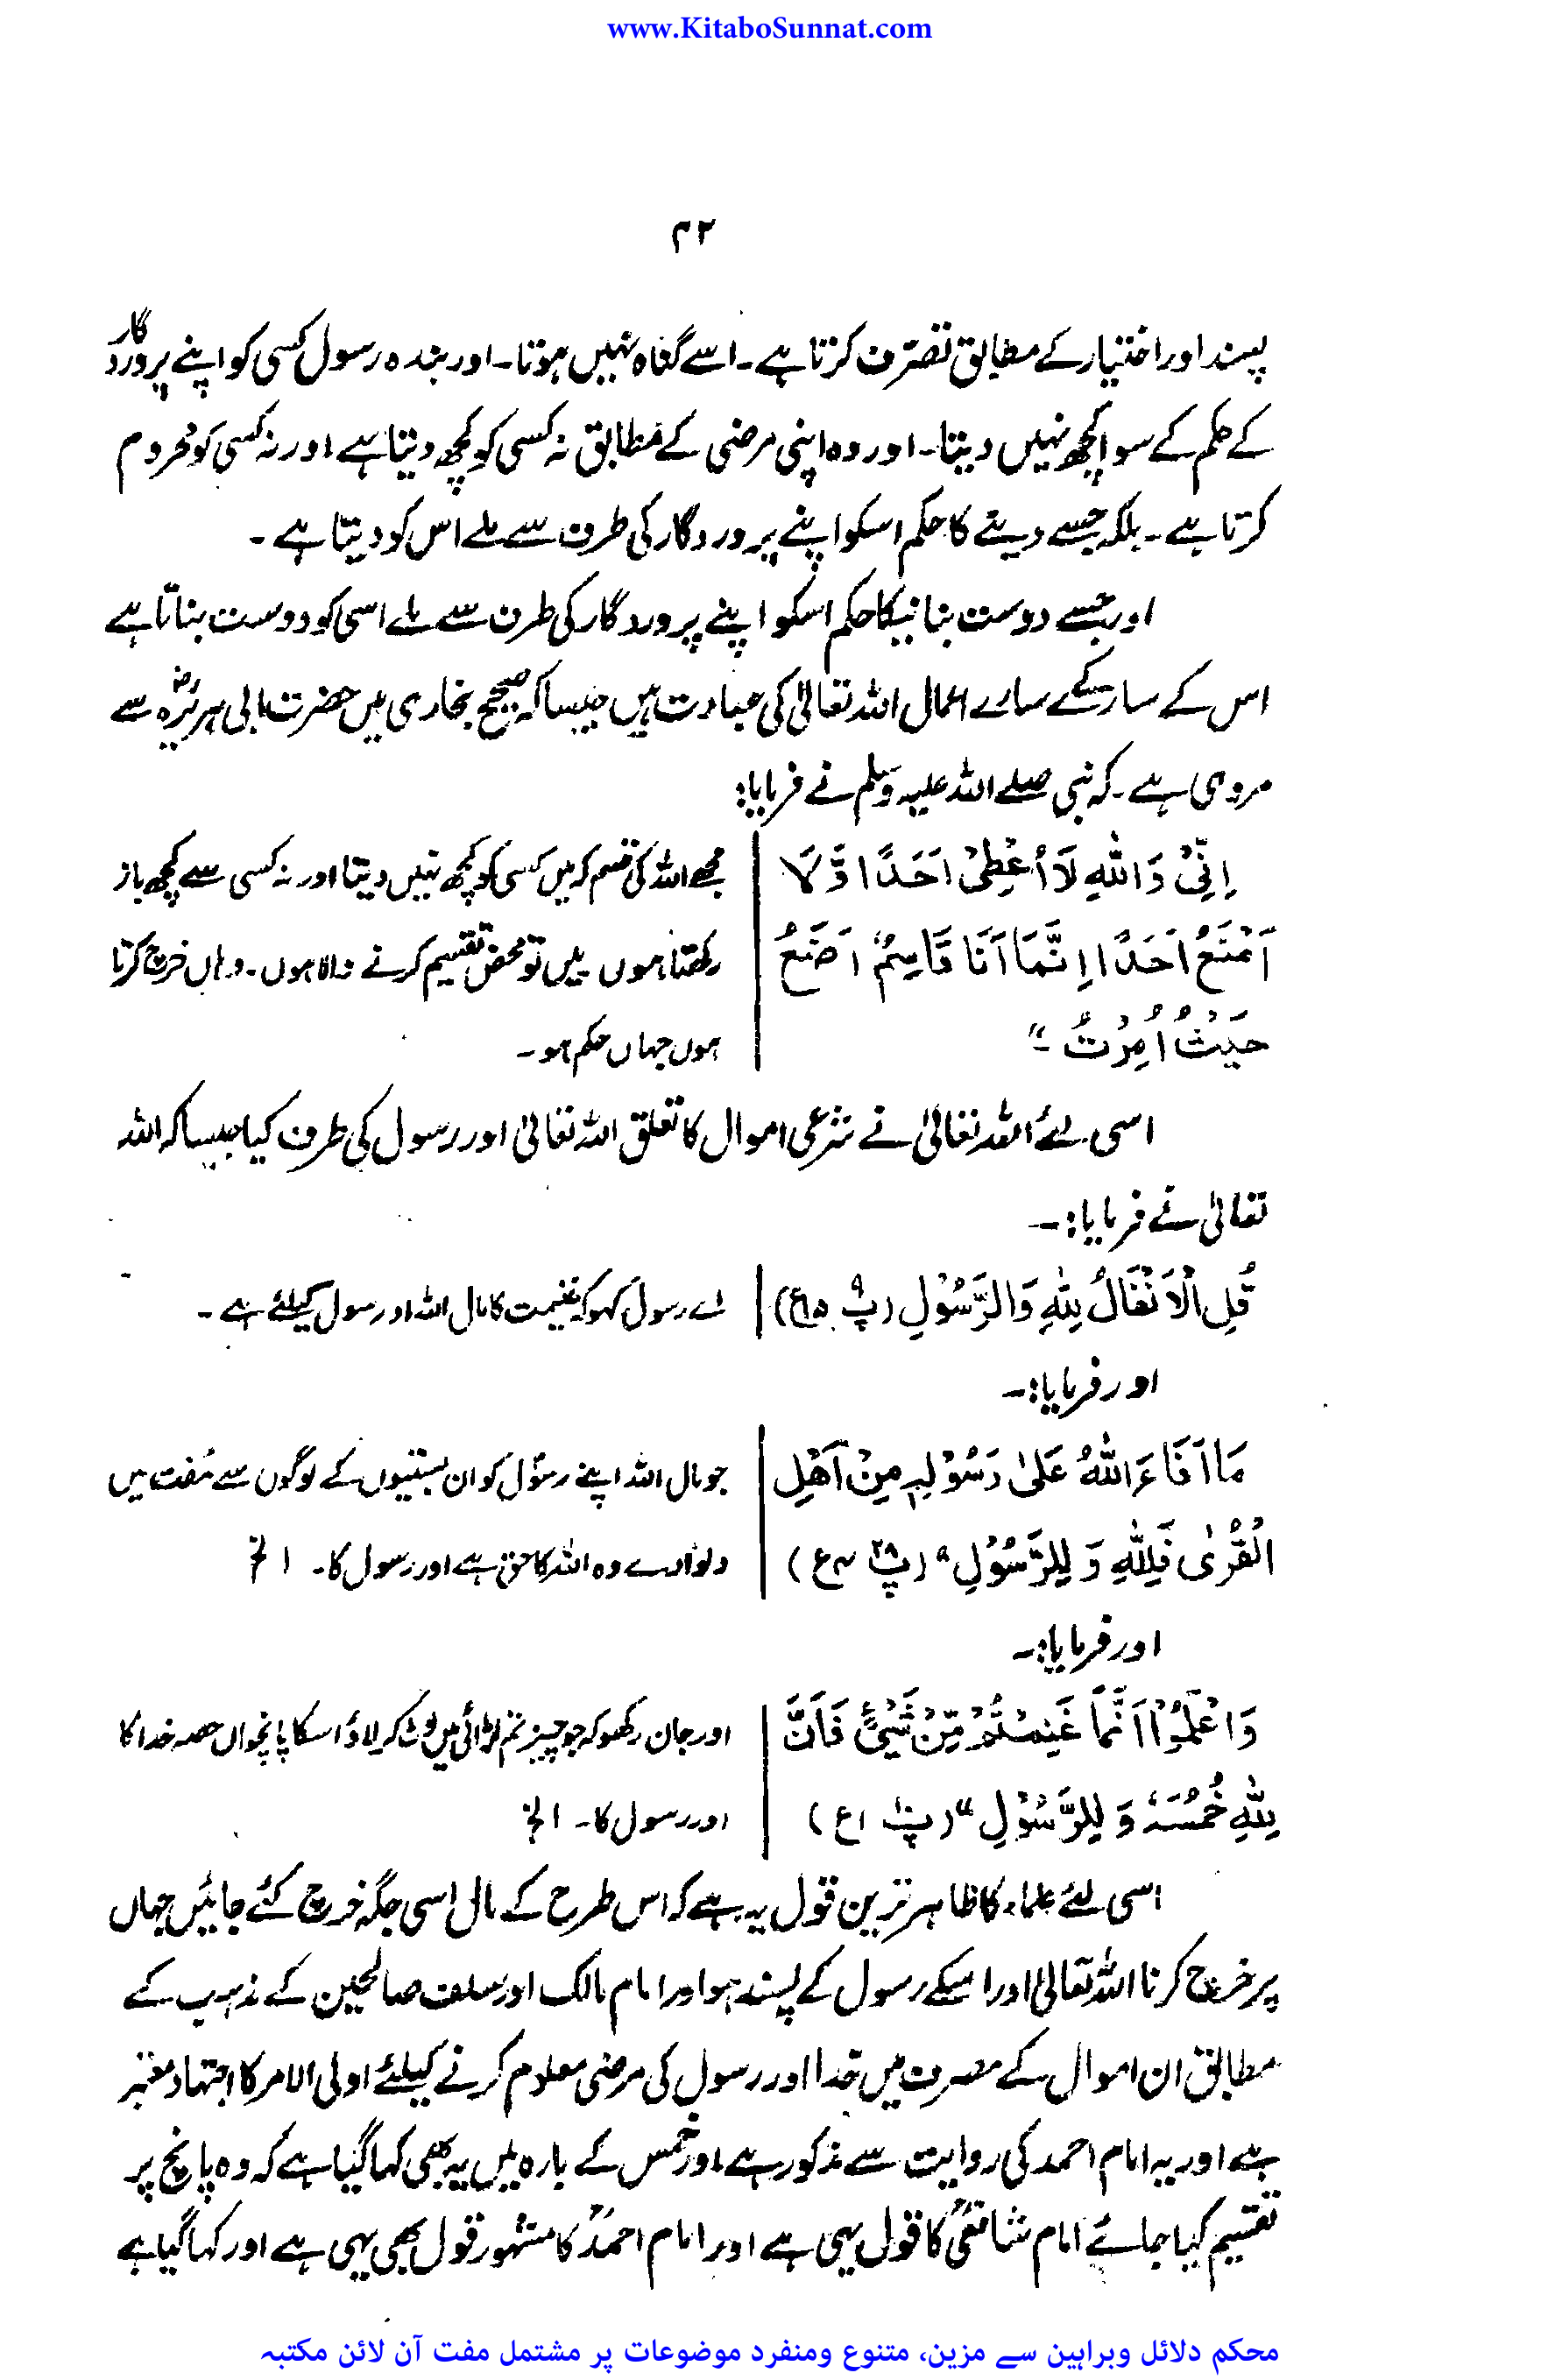 www.KitaboSunnat.com
۴۲
پسند اور اختیار کے مطابق تصرّف کرتا ہے۔ اسے گناہ نہیں ہوتا۔ اور بندہ رسول کسی کو اپنے پروردگار
کے حکم کے سوا کچھ نہیں دیتا۔ اور وہ اپنی مرضی کے مطابق نہ کسی کو کچھ دیتا ہے اور نہ کسی کو محروم
کرتا ہے۔ بلکہ جسے دینے کا حکم اسکو اپنے پروردگار کی طرف سے ملے اس کو دیتا ہے۔
اور جسے دوست بنانیکا حکم اسکو اپنے پروردگار کی طرف سے ملے اسی کو دوست بناتا ہے
اس کے سارے کے سارے اعمال اللہ تعالیٰ کی عبادت ہیں جیسا کہ صحیح بخاری میں حضرت ابی ہریرہؓ سے
مروی ہے۔ کہ نبی صلے اللہ علیہ وسلم نے فرمایا:
اِنِّیْ وَاللّٰهِ لَا اُعْطِیْ اَحَدًا وَّلَا | مجھے اللہ کی قسم کہ میں کسی کو کچھ نہیں دیتا اور نہ کسی سے کچھ باز
اَمْنَعُ اَحَدًا اِنَّمَا اَنَا قَاسِمٌ اَضَعُ | رکھتا ہوں میں تو محض تقسیم کرنے والا ہوں۔ وہاں خرچ کرتا
حَیْثُ اُمِرْتُ ۔" | ہوں جہاں حکم ہو۔
اسی لئے اللہ تعالیٰ نے شرعی اموال کا تعلق اللہ تعالیٰ اور رسول کی طرف کیا جیسا کہ اللہ
تعالیٰ نے فرمایا:۔
قُلِ الْاَنْفَالُ لِلّٰهِ وَالرَّسُوْلِ (پ ۹ ۱۵ع) | اے رسول کہو کہ غنیمت کا مال اللہ اور رسول کیلئے ہے۔
اور فرمایا:۔
مَا اَفَاءَ اللّٰهُ عَلٰی رَسُوْلِهٖ مِنْ اَهْلِ | جو مال اللہ اپنے رسول کو ان بستیوں کے لوگوں سے مُفت میں
الْقُرٰی فَلِلّٰهِ وَ لِلرَّسُوْلِ" (پ ۲۸ ۴ع) | دلوادے وہ اللہ کا حق ہے اور رسول کا۔ الخ
اور فرمایا:۔
وَاعْلَمُوْا اَنَّمَا غَنِمْتُمْ مِّنْ شَیْئٍ فَاَنَّ | اور جان رکھو کہ جو چیز تم لڑائی میں لوٹ کر لاؤ اسکا پانچواں حصہ خدا کا
لِلّٰهِ خُمُسَهٗ وَ لِلرَّسُوْلِ" (پ ۱۰ ۱ع) | اور رسول کا۔ الخ
اسی لئے علماء کا ظاہر ترین قول یہ ہے کہ اس طرح کے مال اسی جگہ خرچ کئے جائیں جہاں
پر خرچ کرنا اللہ تعالیٰ اور اسکے رسول کے پسند ہو اور امام مالک اور سلف صالحین کے مذہب کے
مطابق ان اموال کے مصرف میں خدا اور رسول کی مرضی معلوم کرنے کیلئے اولی الامر کا اجتہاد معتبر
ہے اور یہ امام احمد کی روایت سے مذکور ہے اور خمس کے بارہ میں یہ بھی کہا گیا ہے کہ وہ پانچ پر
تقسیم کیا جائے امام شافعیؒ کا قول یہی ہے اور امام احمدؒ کا مشہور قول بھی یہی ہے اور کہا گیا ہے
محکم دلائل وبراہین سے مزین، متنوع ومنفرد موضوعات پر مشتمل مفت آن لائن مکتبہ